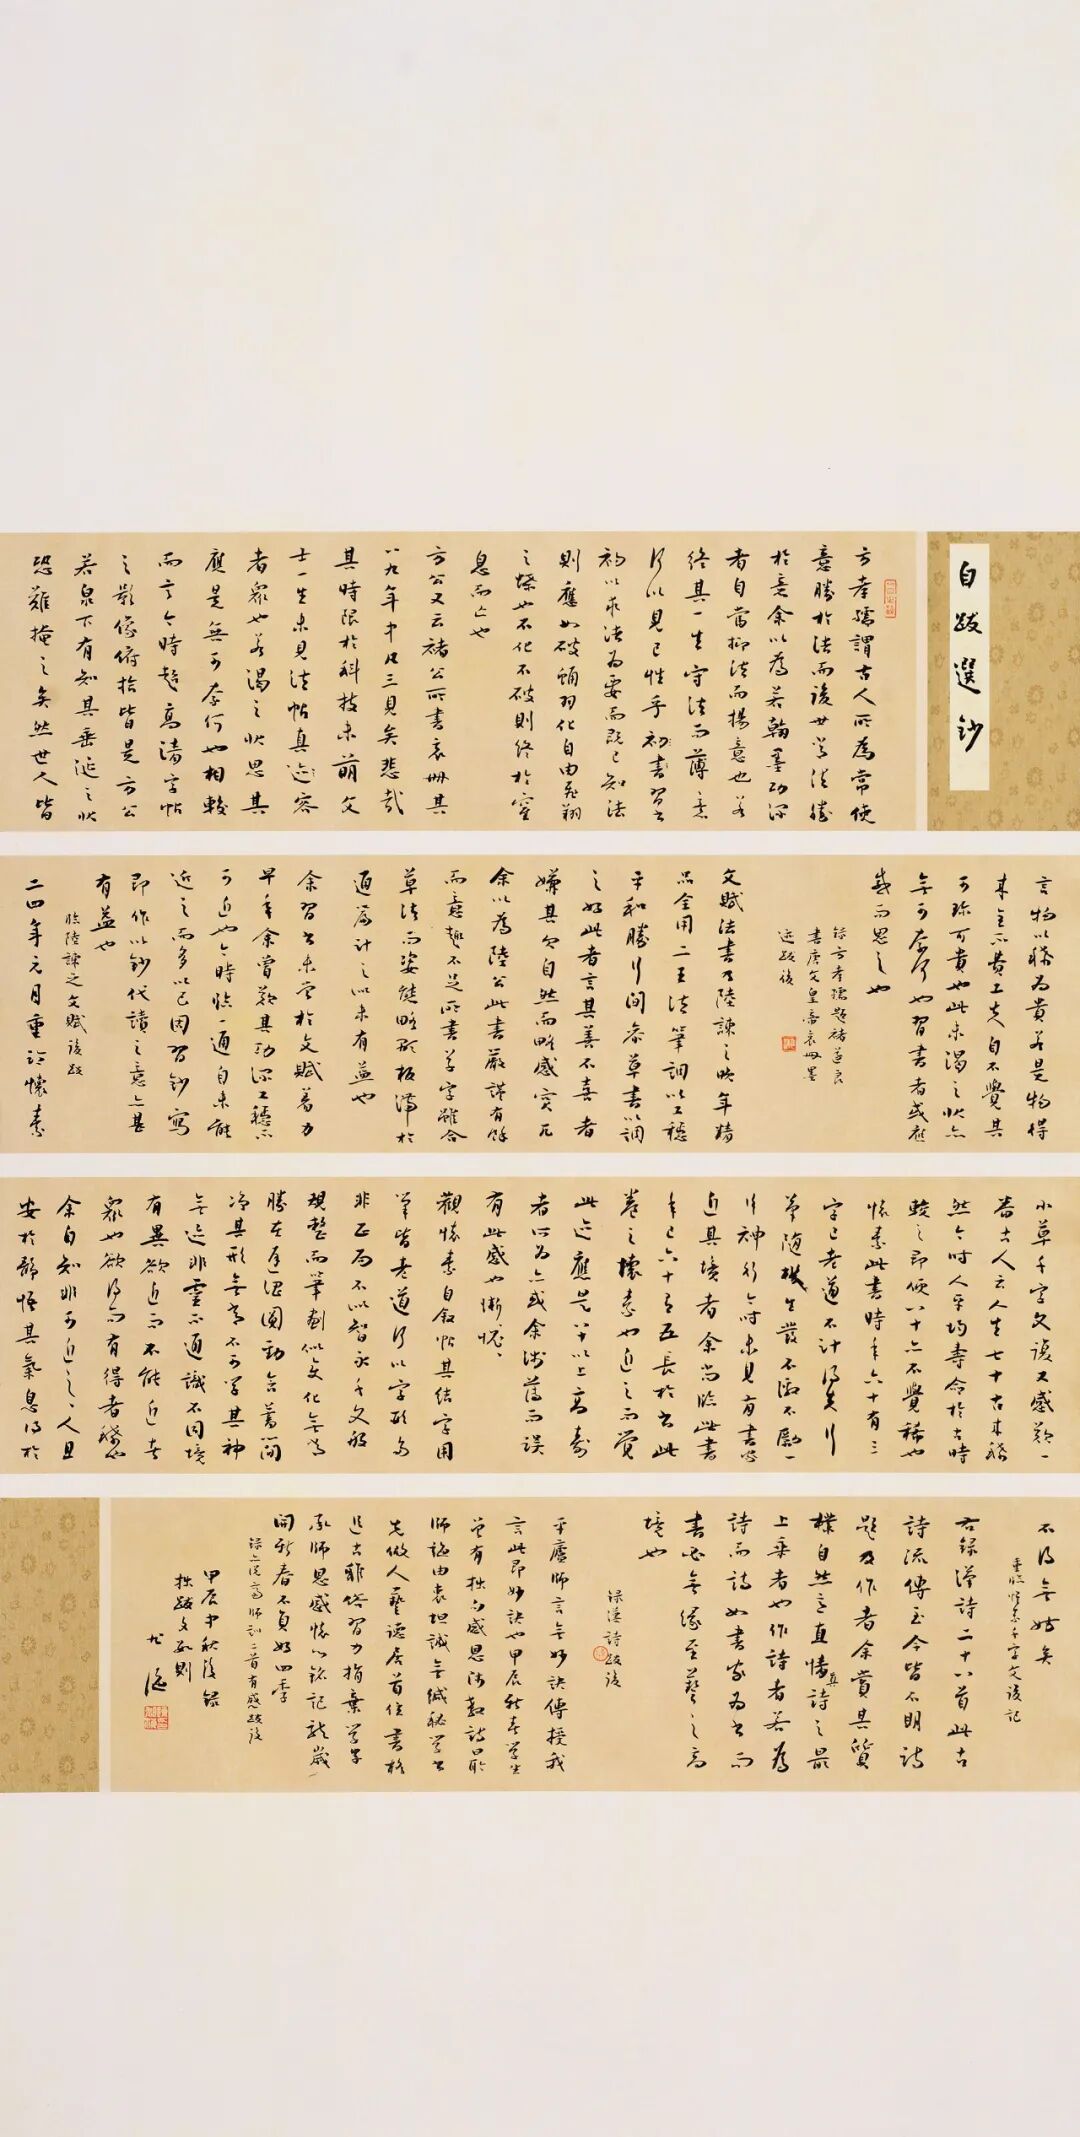 自跋選鈔
方孝孺謂古人所為常使
意勝於法而後世常法勝
於意余以為若翰墨功深
者自當抑法而揚意也若
終其一生守法而薄意
何以見己性乎初書習之
初以求法為要而既已知法
則應如破蛹羽化自由飛翔
之蝶也不化不破則終於窒
息而亡也
方公又云褚公所書哀冊其
八九年中凡三見矣悲哉
其時限於科技未萌文
士一生未見法帖真迹容
者衆也若渴之狀思其
應是無可奈何也相較
而言今時超高清字帖
之影像俯拾皆是方公
若泉下有知其垂涎之狀
恐難掩之矣然世人皆
言物以稀為貴若是物得
來全不費工夫自不覺其
可珍可貴也此未渴之狀亦
無可奈何也習書者或應
幾而思之也
錄方孝孺題褚遂良
書唐文皇帝哀冊墨
迹跋後
文賦法書乃陸諫之晚年精
品全用二王法筆調以工穩
平和勝行間參草書以調
之好此者言其善不喜者
嫌其欠自然而略感實冗
余以為陸公此書嚴謹有餘
而意趣不足所書草字雖合
草法而姿態略顯板滯於
通篇計之以未有益也
余習書未嘗於文賦著力
早年余嘗歎其功深工穩不
可近也今時臨一通自未能
近之而多以己因習鈔寫
即作以鈔代讀之意亦甚
有益也
臨陸諫之文賦後跋
二四年元月重臨懷素
小草千字文後又感歎一
番古人云人生七十古來稀
然今時人平均壽命於古時
較之即便八十亦不覺稀也
懷素此書時年六十有三
字已老道不計得失行
筆隨機生發不激不勵一
行神行今時未見有書如
近其境者余尚臨此書
年已六十有五長於書此
卷之懷素也近之而覺
此迹應是八十以上高壽
者所為亦或余淺薄而誤
有此感也慚愧
觀懷素自叙帖其結字用
筆皆老道何以字形多
非正局不似智永千文般
規整而筆劃似變化無多
勝在圓渾圓勁含蓄簡
淨其形無常不可學其神
無迹非靈不通識不同境
有異欲近而不能近者
衆也欲得而有得者稀也
余自知非可近之人且
安於靜悟其氣息得於
不得無妨矣
重臨懷素千字文後記
右錄漢詩二十八首此古
詩流傳至今皆不明詩
題及作者余賞其質
樸自然意直情真詩之最
上乘者也作詩者若為
詩而詩如書家為書而
書必無緣至藝之高
境也
錄漢詩跋後
平廬師言無妙訣傳授我
言此即妙訣也甲辰新春學生
曾有拙句感恩沛敦詩最
師謠由衷坦誠無緘秘學書
先做人藝德居首位書格
追古離俗習力指棄學子
承師恩感懷以銘記龍歲
開新春不負好四季
錄亦從高師訓二首有感跋後
甲辰中秋後錄
拙跋文數則